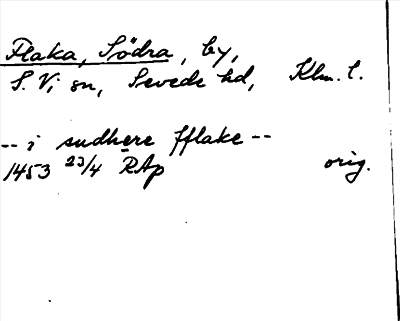 Flaka, Södra, by,
S. Vi sn, Sevede hd, Klm. l.
-- i sudhere fflake --
1453 23/4 RAp orig.